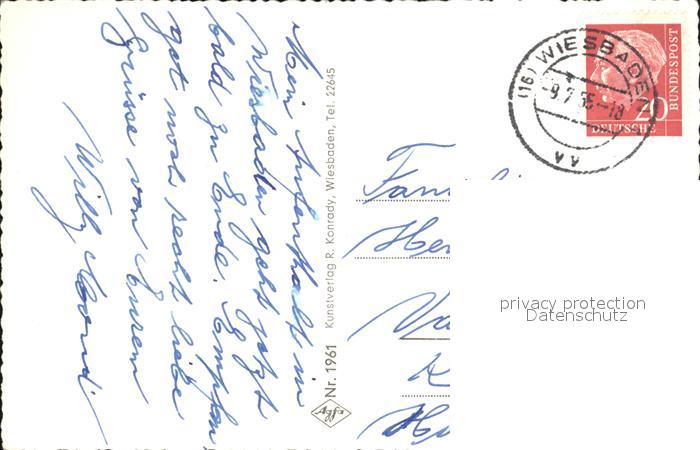 Mein Aufenthalt in
Wiesbaden geht jetzt
bald zu Ende. Empfangen
noch recht liebe
Grüsse von Eurem
Willy
Nr. 1961 Kunstverlag R. Konrady, Wiesbaden, Tel. 22645
Agfa
(16) WIESBADEN
-9.7.56-18
vv
20
DEUTSCHE BUNDESPOST
Fam
privacy protection
Datenschutz